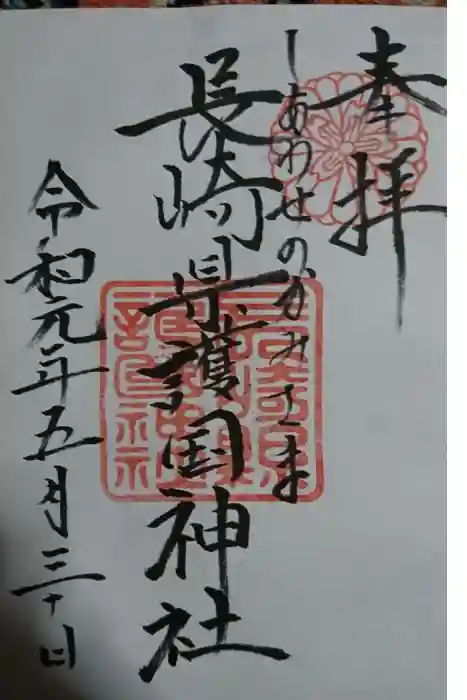 奉拝
しあわせのかみさま
長崎県護国神社
令和元年五月三十日